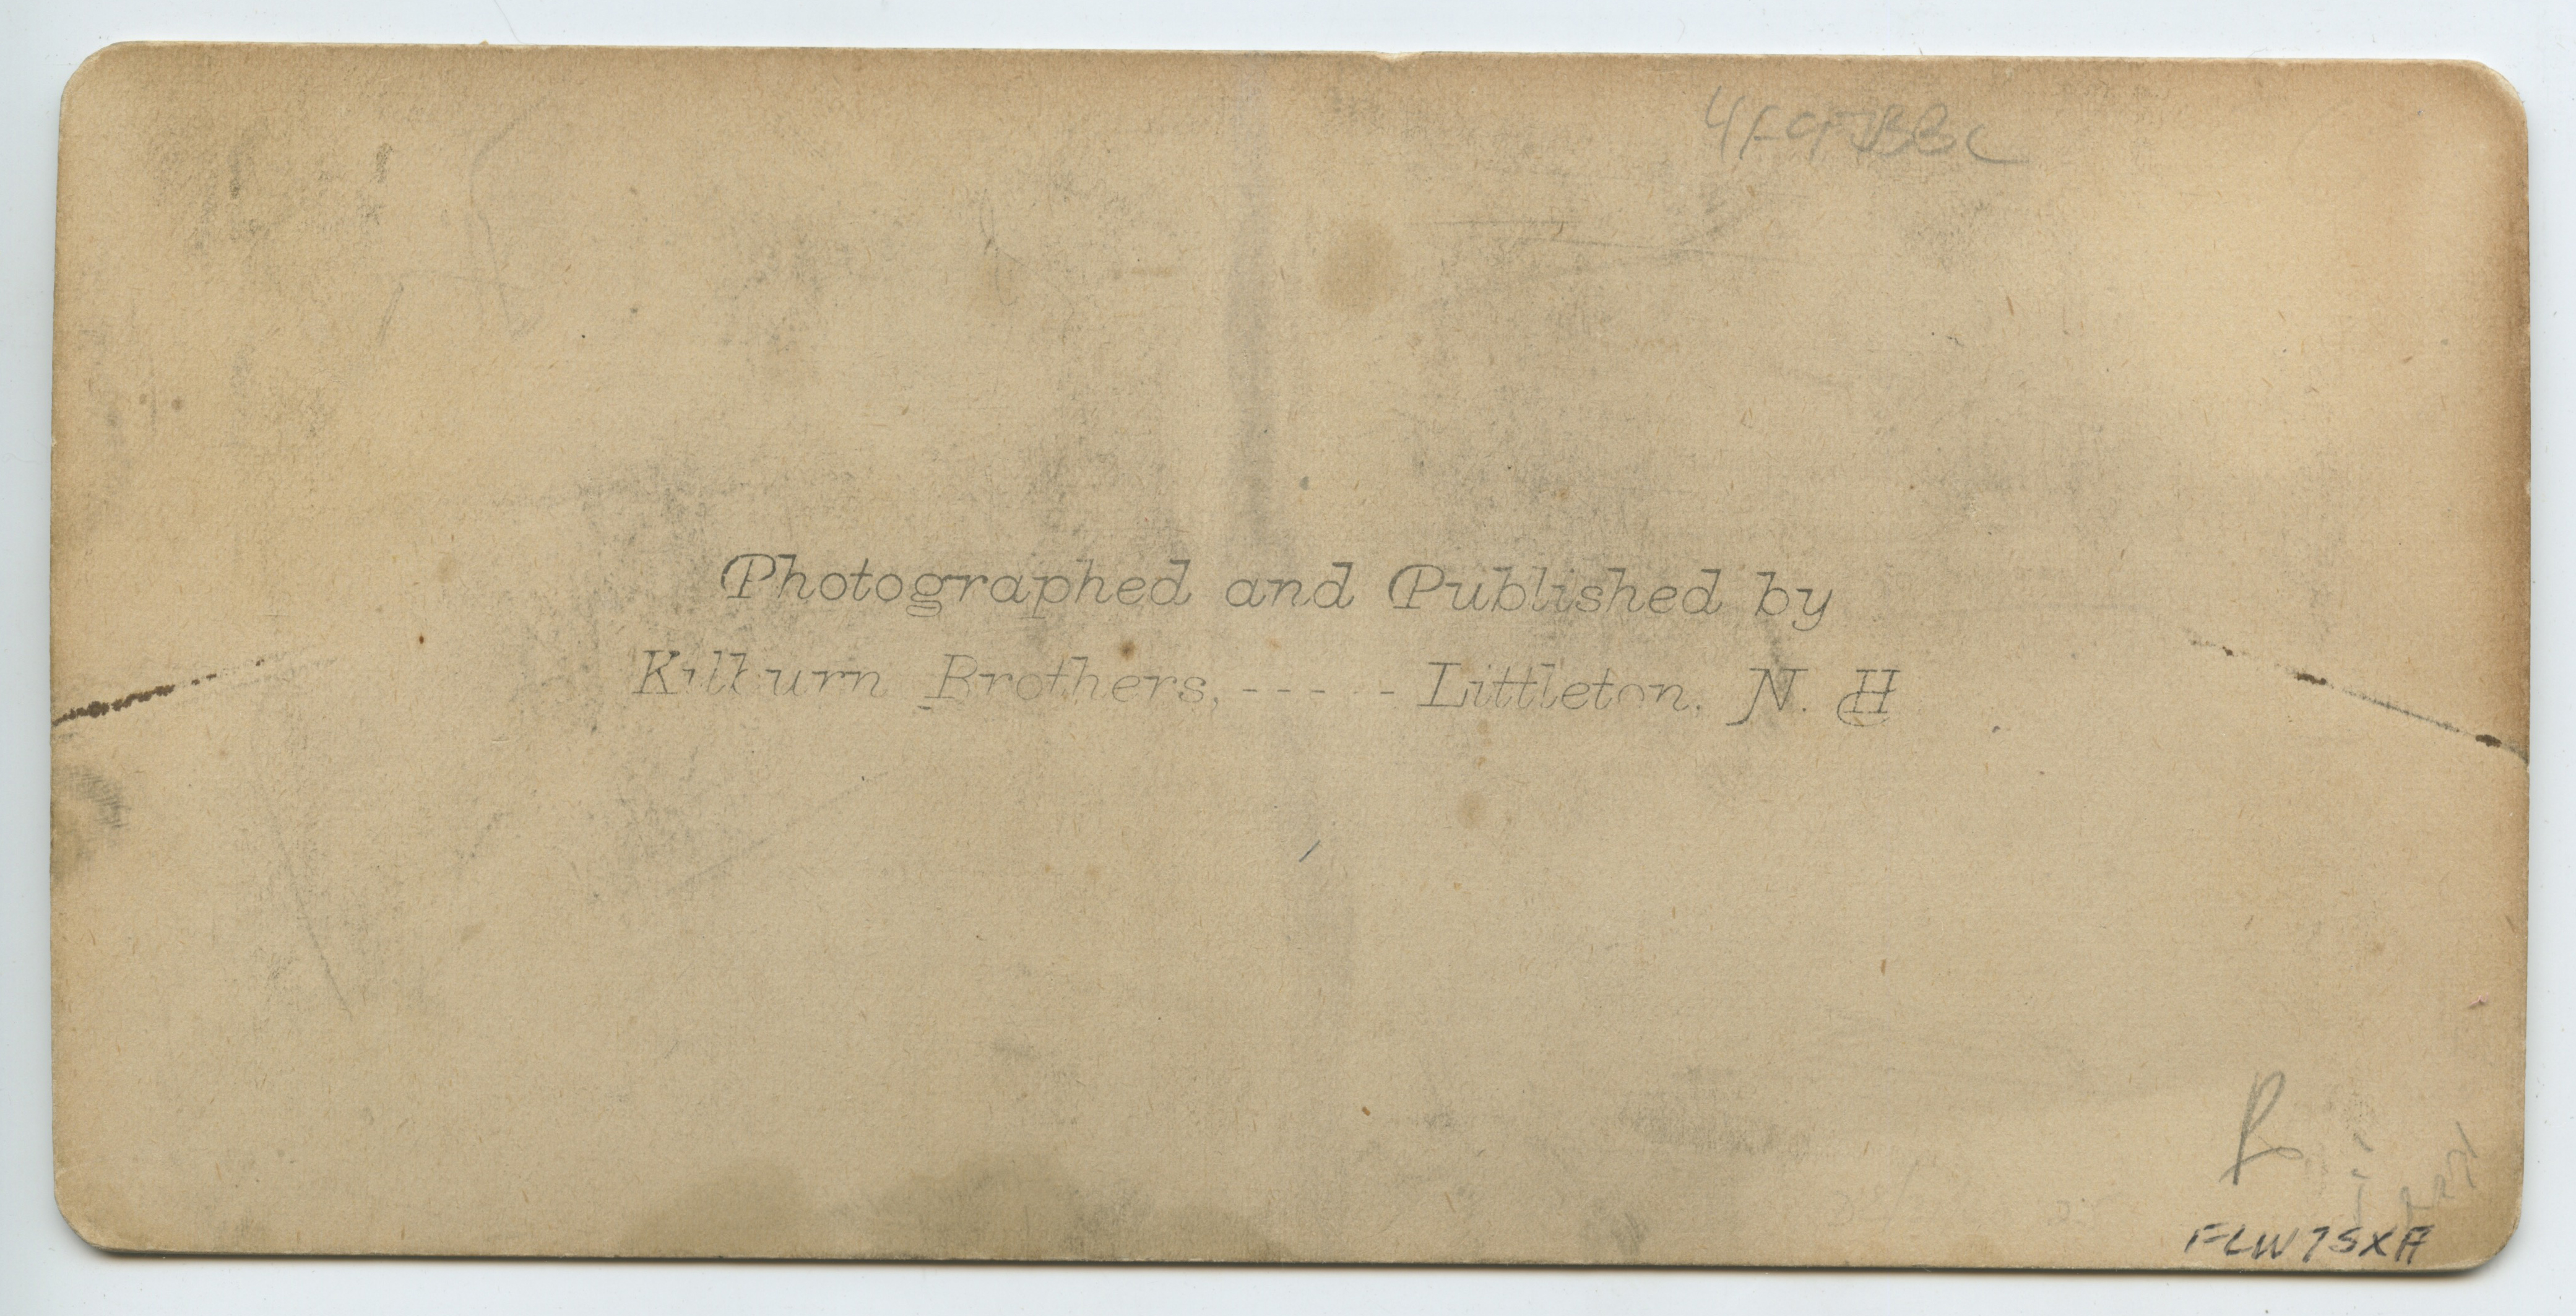 Photographed and Published by
Kilburn Brothers, - - - - - Littleton, N. H
FLW7SXA